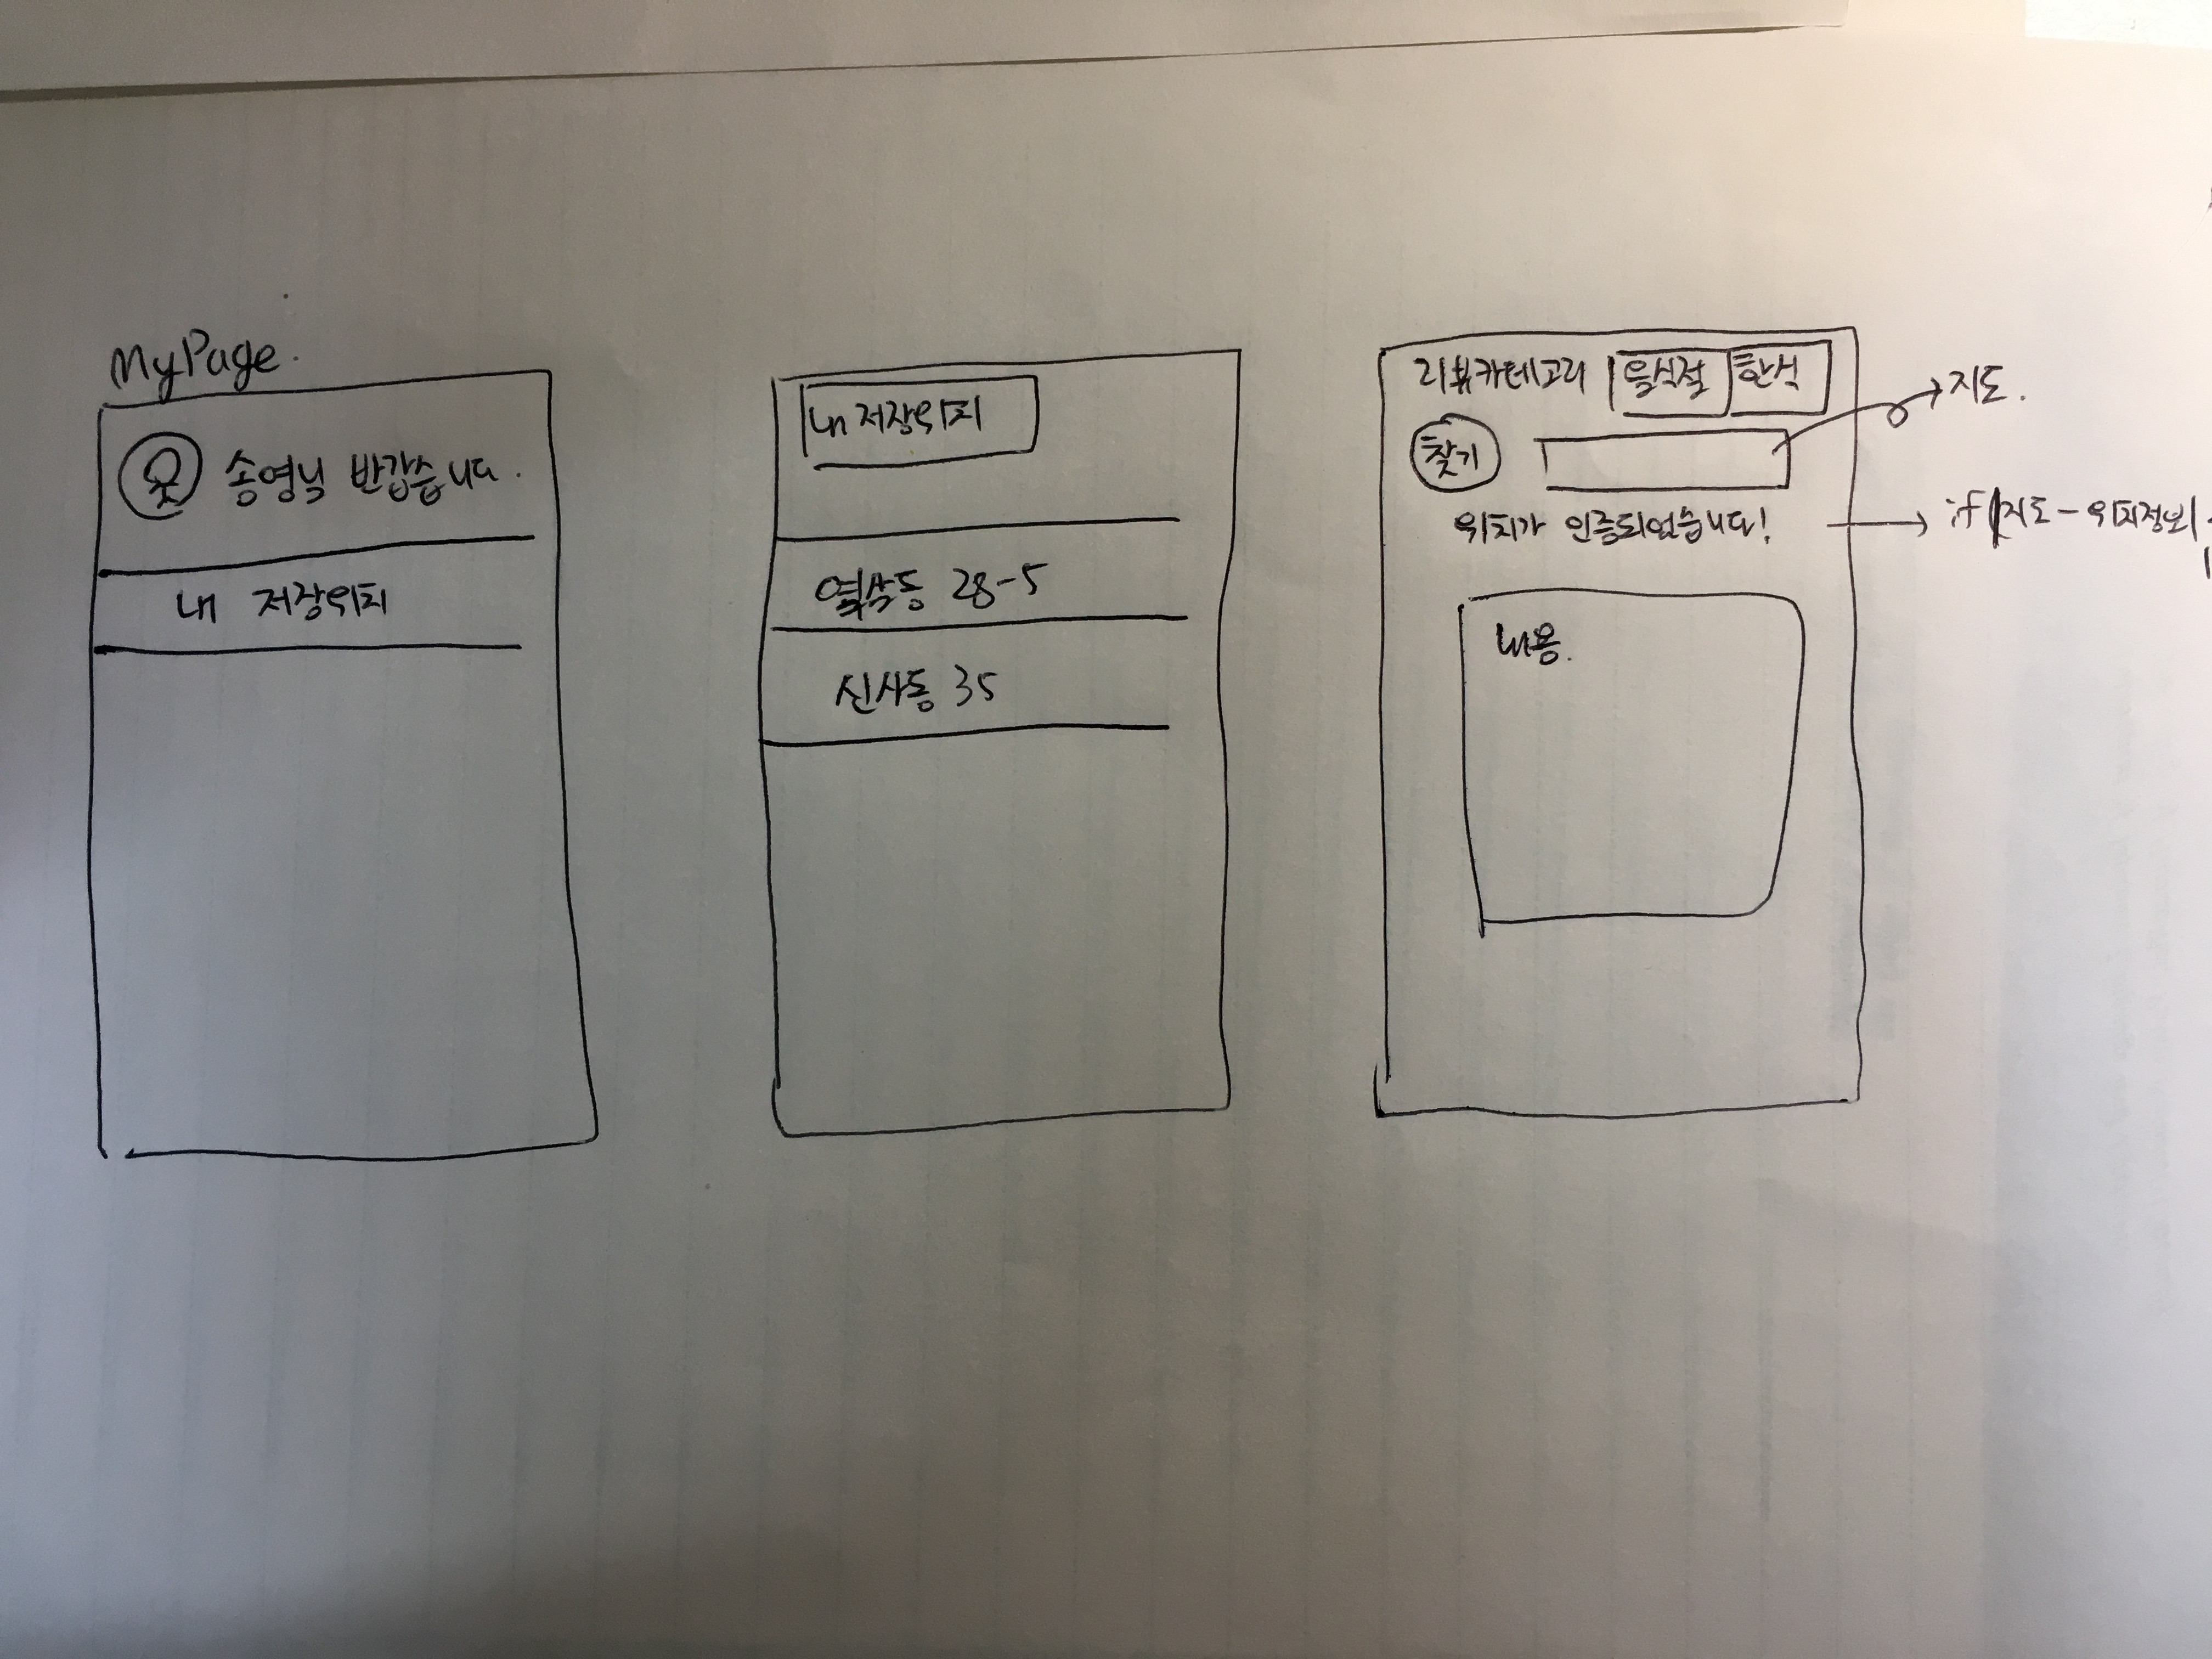 MyPage.
송영님 반갑습니다.
내 저장위치
내 저장위치
역삼동 28-5
신사동 35
리뷰카테고리 음식점 한식
지도.
찾기
위치가 인증되었습니다!
if 지도-위치정보
내용.